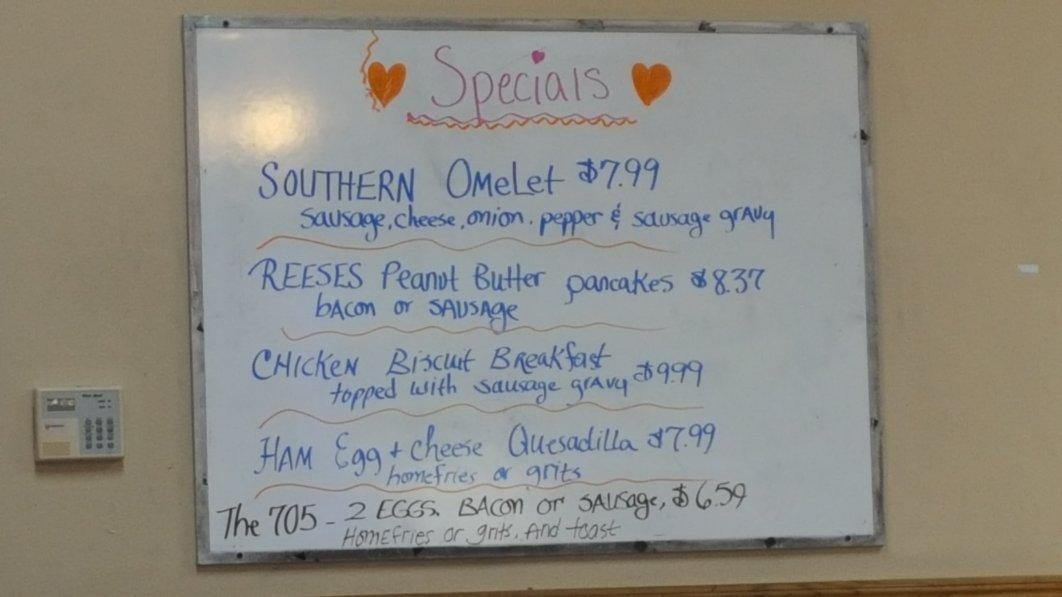 Specials
SOUTHERN OmeLet $7.99
sausage, cheese, onion, pepper & sausage gravy
REESES Peanut Butter pancakes $8.37
bacon or SAUSAge
CHICKEN Biscuit Breakfast
topped with sausage gravy $9.99
HAM Egg + cheese Quesadilla $7.99
homefries or grits
The 705 - 2 EGGS. BAcon or SAUSage, $6.59
HomeFries or grits. And toast